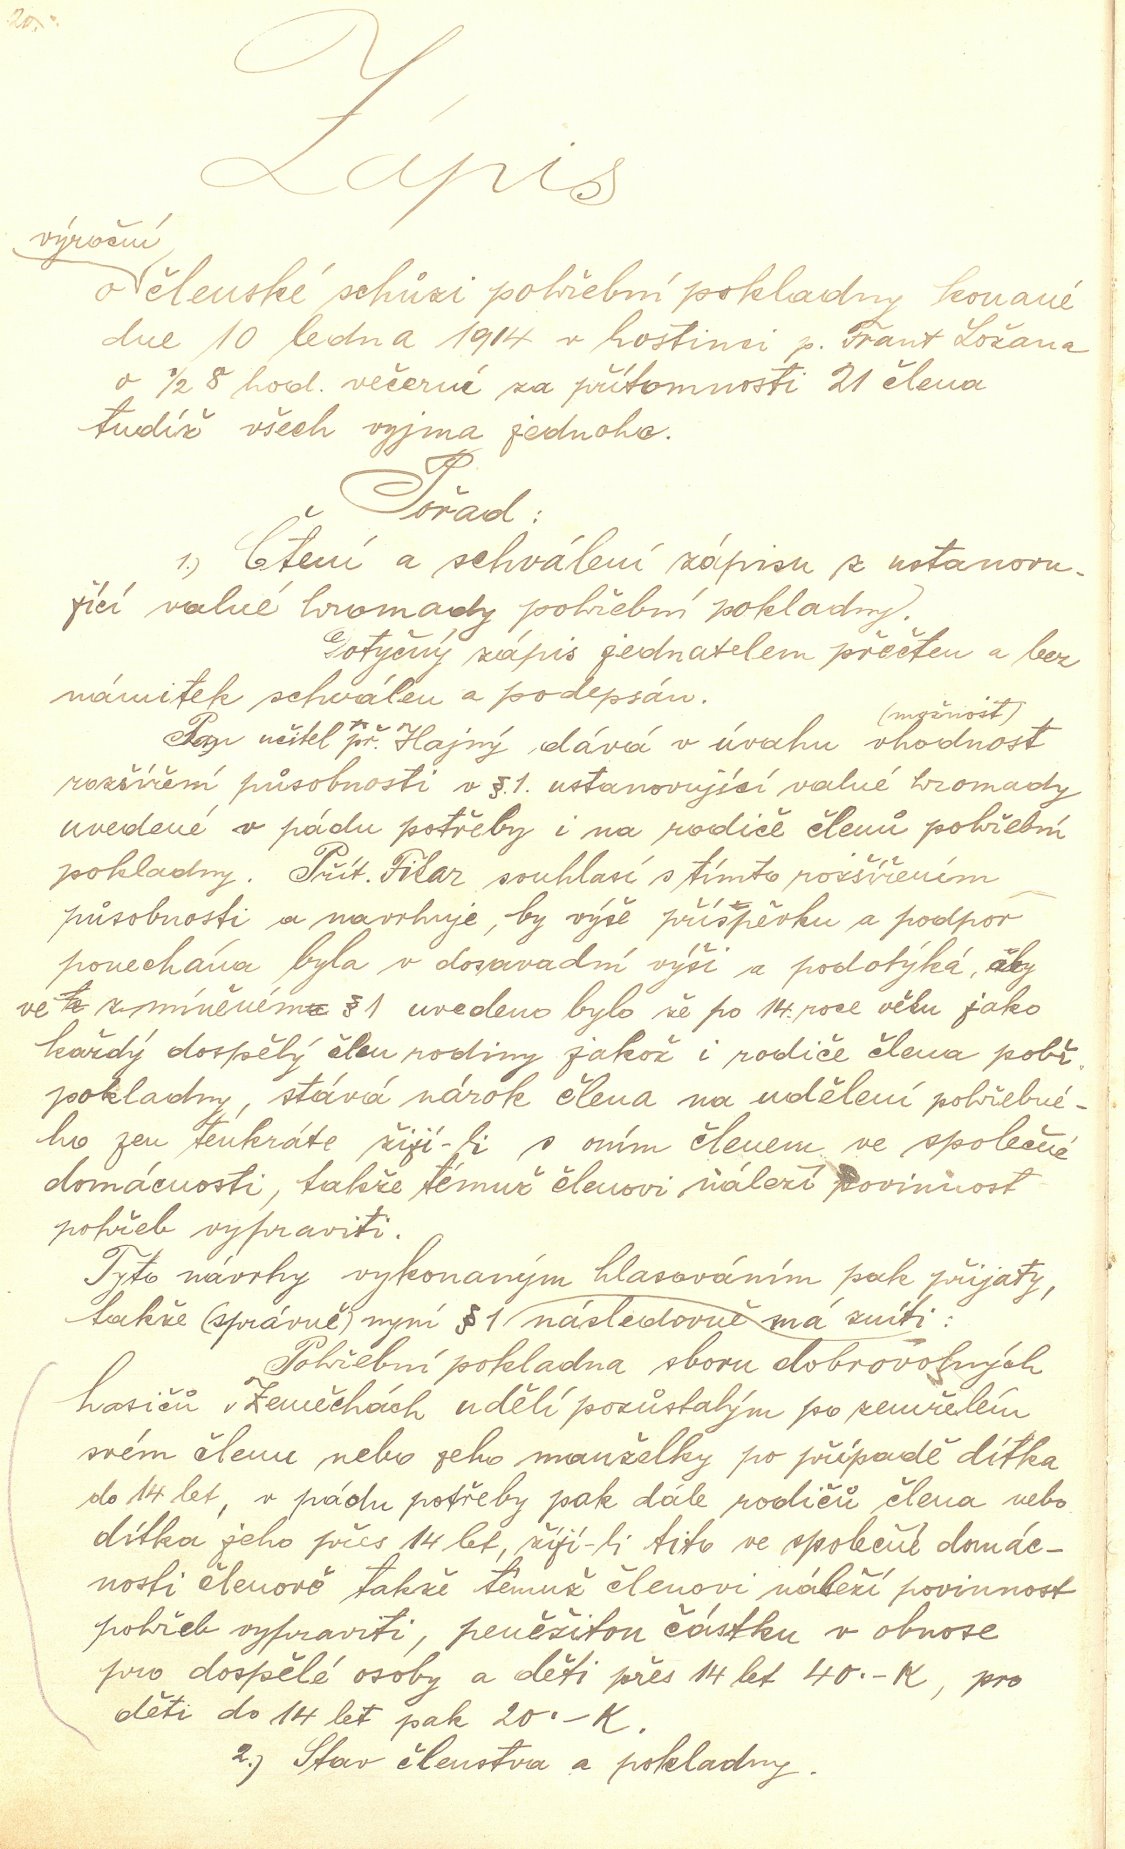 20.
Zápis
výroční
o členské schůzi pohřební pokladny konané
dne 10 ledna 1914 v hostinci p. Frant Ložana
o ½ 8 hod. večerní za přítomnosti 21 člena
tudíž všech vyjma jednoho.
Pořad:
1.) Čtení a schválení zápisu z ustanovu-
jící valné hromady pohřební pokladny.
Dotyčný zápis jednatelem přečten a bez
námitek schválen a podepsán.
(možnost)
Pan učitel př. Hajný dává v úvahu vhodnost
rozšíření působnosti v §.1. ustanovující valné hromady
uvedené v pádu potřeby i na rodiče členů pohřební
pokladny. Přít. Fišar souhlasí s tímto rozšířením
působnosti a navrhuje, by výše příspěvku a podpor
ponechána byla v dosavadní výši a podotýká, aby
ve zmíněném § 1 uvedeno bylo že po 14. roce věku jako
každý dospělý člen rodiny jakož i rodiče člena pohř.
pokladny, stává nárok člena na udělení pohřebné-
ho jen tenkráte žijí-li s oním členem ve společné
domácnosti, takže témuž členovi náleží povinnost
pohřeb vypraviti.
Tyto návrhy vykonaným hlasováním pak přijaty,
takže (správně) nyní § 1 následovně má zníti:
Pohřební pokladna sboru dobrovolných
hasičů v Zeměchách udělí pozůstalým po zemřelém
svém členu nebo jeho manželky po případě dítka
do 14 let, v pádu potřeby pak dále rodičů člena nebo
dítka jeho přes 14 let, žijí-li tito ve společné domác-
nosti členově takže témuž členovi náleží povinnost
pohřeb vypraviti, peněžitou částku v obnose
pro dospělé osoby a děti přes 14 let 40.-K, pro
děti do 14 let pak 20.-K.
2.) Stav členstva a pokladny.